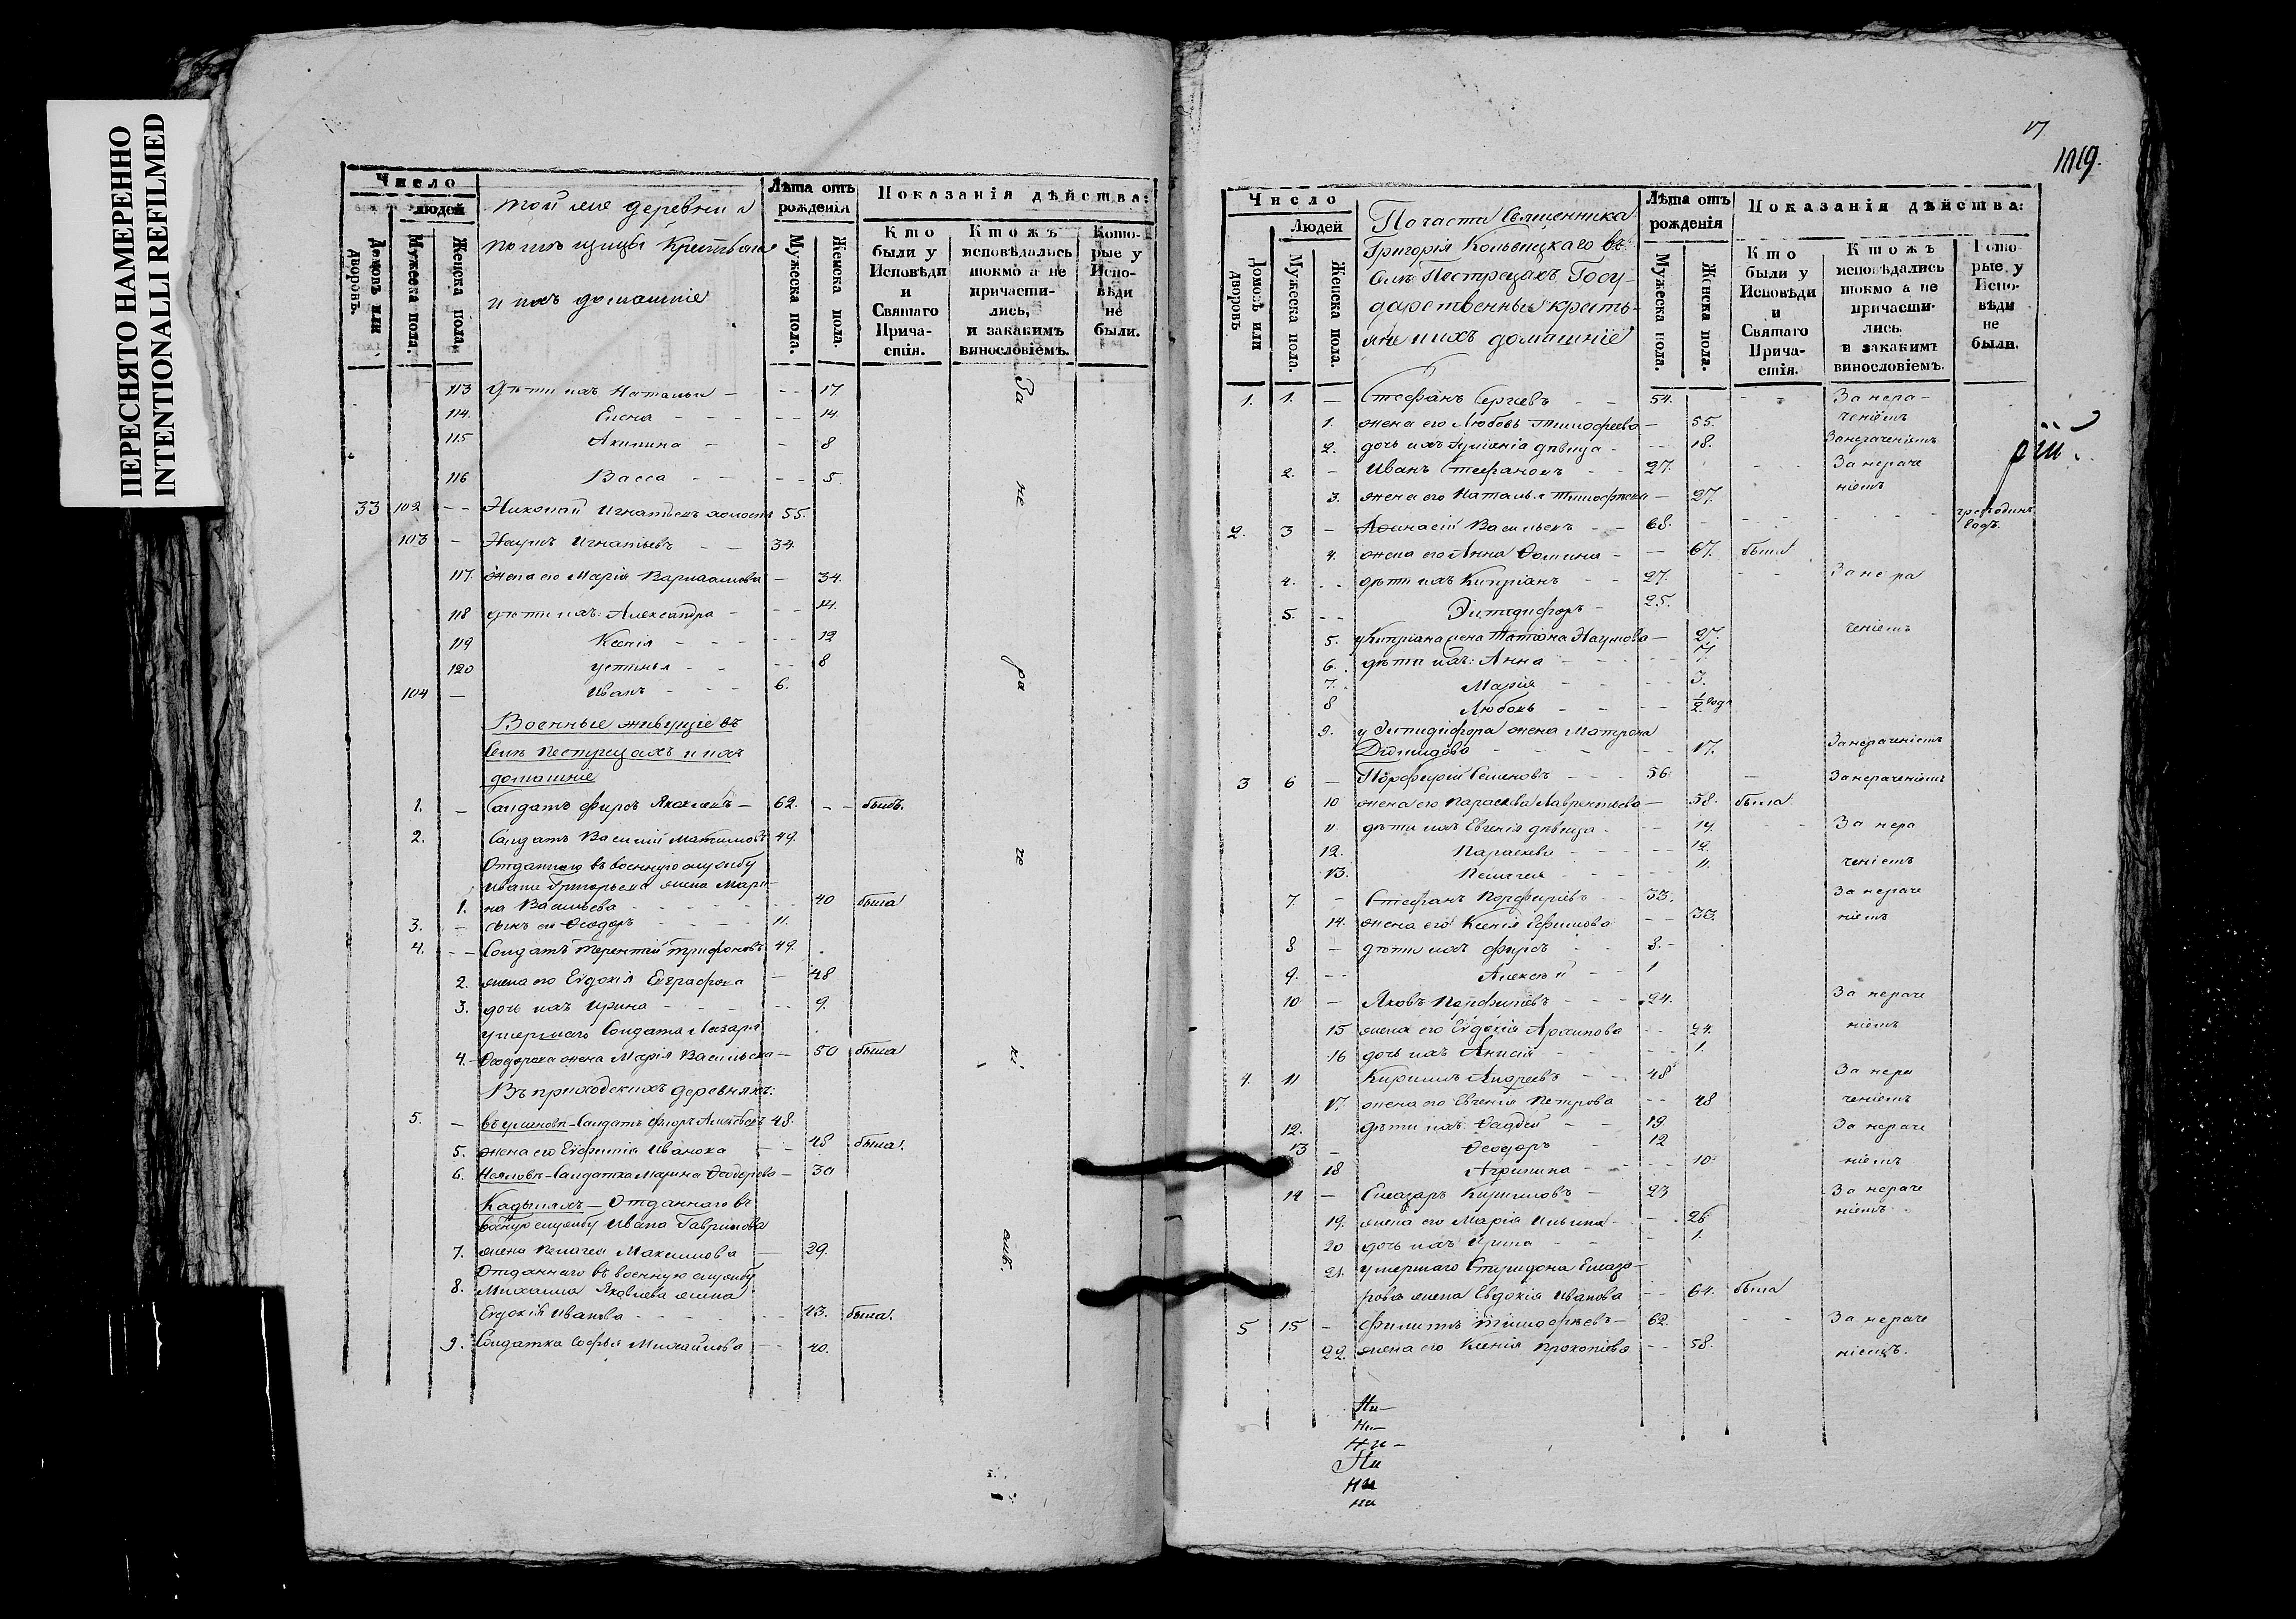 ПЕРЕСНЯТО НАМЕРЕННО
INTENTIONALLI REFILMED
Число
людей
Домовъ или дворовъ.
Мужеска пола.
Женска пола.
той же деревни
помещицы
и ихъ домашніе
Лѣта отъ рожденія
Мужеска пола.
Женска пола.
Показанія дѣйства:
Кто были у Исповѣди и Святаго Прича-стія.
Ктожъ исповѣдались токмо а не причасти-лись, и закакимъ винословіемъ.
Кото-рые у Испо-вѣди не были.
113 дѣти ихъ Наталья - - - 17
114. Елена - - - 14.
115 Акилина - - 8
116 Васса - - - - 5.
33 102 - - Николай Игнатьевъ холостъ 55.
103 - Наумъ Игнатьевъ - - 34.
117. жена его Марія Варлаамова - 34.
118 дѣти ихъ: Александра - - - 14.
119 Ксенія - - - - 12
120 устинья - - - - 8
104 - Иванъ - - - 6.
Военные живущіе въ
Селѣ Пестрецахъ и ихъ
домашніе
1. - Солдатъ Фирсъ Яковлевъ - 62. - - былъ.
2. Солдатъ Василій 49.
Отданнаго въ военную службу
Ивана Григорьева жена Мари-
1. на Васильева - - - - 40 была
3. - сынъ ея Ѳеодоръ - - - 11.
4. - - Солдатъ Терентій Трифоновъ 49.
2. жена его Евдокія Евграфова - 48
3. дочь ихъ Ирина - - - - 9.
умершаго Солдата Лазаря
4. - Ѳеодорова жена Марія Васильева - 50 была
Въ приходскихъ деревняхъ:
5. - Солдатъ 48.
5. жена его Евфимія Иванова - - 48 была.
6. Солдатка Марина Ѳеодорова - 30
Кадыляхъ - Отданнаго въ
военную службу Ивана Гаврилова
7. жена Пелагея Максимова - 29.
Отданнаго въ военную службу
8. Михаила Яковлева жена
Евдокія Иванова - - - - 43. была.
9. Солдатка Софья Михайлова - - 40.
За не ра че ні емъ.
17
1119.
Число
Людей
Домовъ или дворовъ
Мужеска пола.
Женска пола.
По части Священника
Григорія въ
Селѣ Пестрецахъ Госу-
дарственныя кресть-
яне и ихъ домашніе
Лѣта отъ рожденія
Мужеска пола.
Женска пола.
Показанія дѣйства:
Кто были у Исповѣди и Святаго Прича-стія.
Ктожъ исповѣдались токмо а не причасти-лись. и закакимъ винословіемъ.
Кото-рые у Испо-вѣди не были.
1. 1. - Стефанъ Сергѣевъ - - 54. - - За нера-
1. жена его Любовь Тимофеева - 55. ченіемъ
2. дочь ихъ дѣвица - - - 18. За нераченіемъ
2. - Иванъ Стефановъ - - 27. За нераче
3. жена его Наталья Тимофеева - 27. ніемъ
2. 3 - Аѳанасій Васильевъ - - 68.
4. жена его Анна Ѳомина - - 67. была
4. - - дѣти ихъ Кипріанъ - - 27. - - За нера
5. - - Эпидифоръ - 25.
5. у Кипріана жена Татіана Наумова - 27. ченіемъ
6. дѣти ихъ: Анна - - -
7. Марія - - - 3.
8 Любовь - - - 1/2 года
9. у Эпидифора жена Матрона
17. За нераченіемъ
3 6 - Порфирій Семеновъ - - 56 - За нераченіемъ
10 жена его Параскева Лаврентьева - 58. была
11. дѣти ихъ Евгенія дѣвица - - - 19. За нера
12. Параскева - - - 12.
13. Пелагея - - - 11. ченіемъ
7. - Стефанъ Порфиріевъ - - 33. За нераче
14. жена его Ксенія Ефимова - - 33. ніемъ
8 - дѣти ихъ Фирсъ - - 8. -
9. - - Алексѣй - - 1
10 - Яковъ Порфиріевъ - - 24. За нераче
15 жена его Евдокія - - 24. ніемъ
16 дочь ихъ Анисія - - - 1.
4. 11 Кириллъ Андреевъ - - 48 За нера
17. жена его Евгенія Петрова - - 48 ченіемъ
12. дѣти ихъ: Фаддей - - 19. За нераче
13 - Ѳеодоръ - 12
18 Агрипина - - - 10 ніемъ
14 - Елеазаръ Кирилловъ - 23 За нераче
19. жена его Марія Ильина - - 26 ніемъ
20 дочь ихъ Ирина - - - 1.
21. умершаго Спиридона Елеаза-
рова жена Евдокія Иванова - - 64. была
5 15 - Филиппъ Тимофѣевъ - 62 - - За нераче
22. жена его Ксенія Прокопіева - - 58. ніемъ.
Ни-
Ни-
Ни-
Ни
Ни
ни